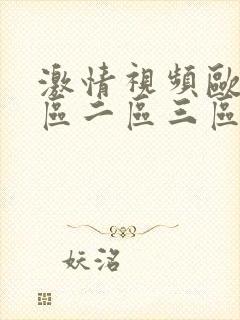 激情視頻歐
區二區三區
妖洺